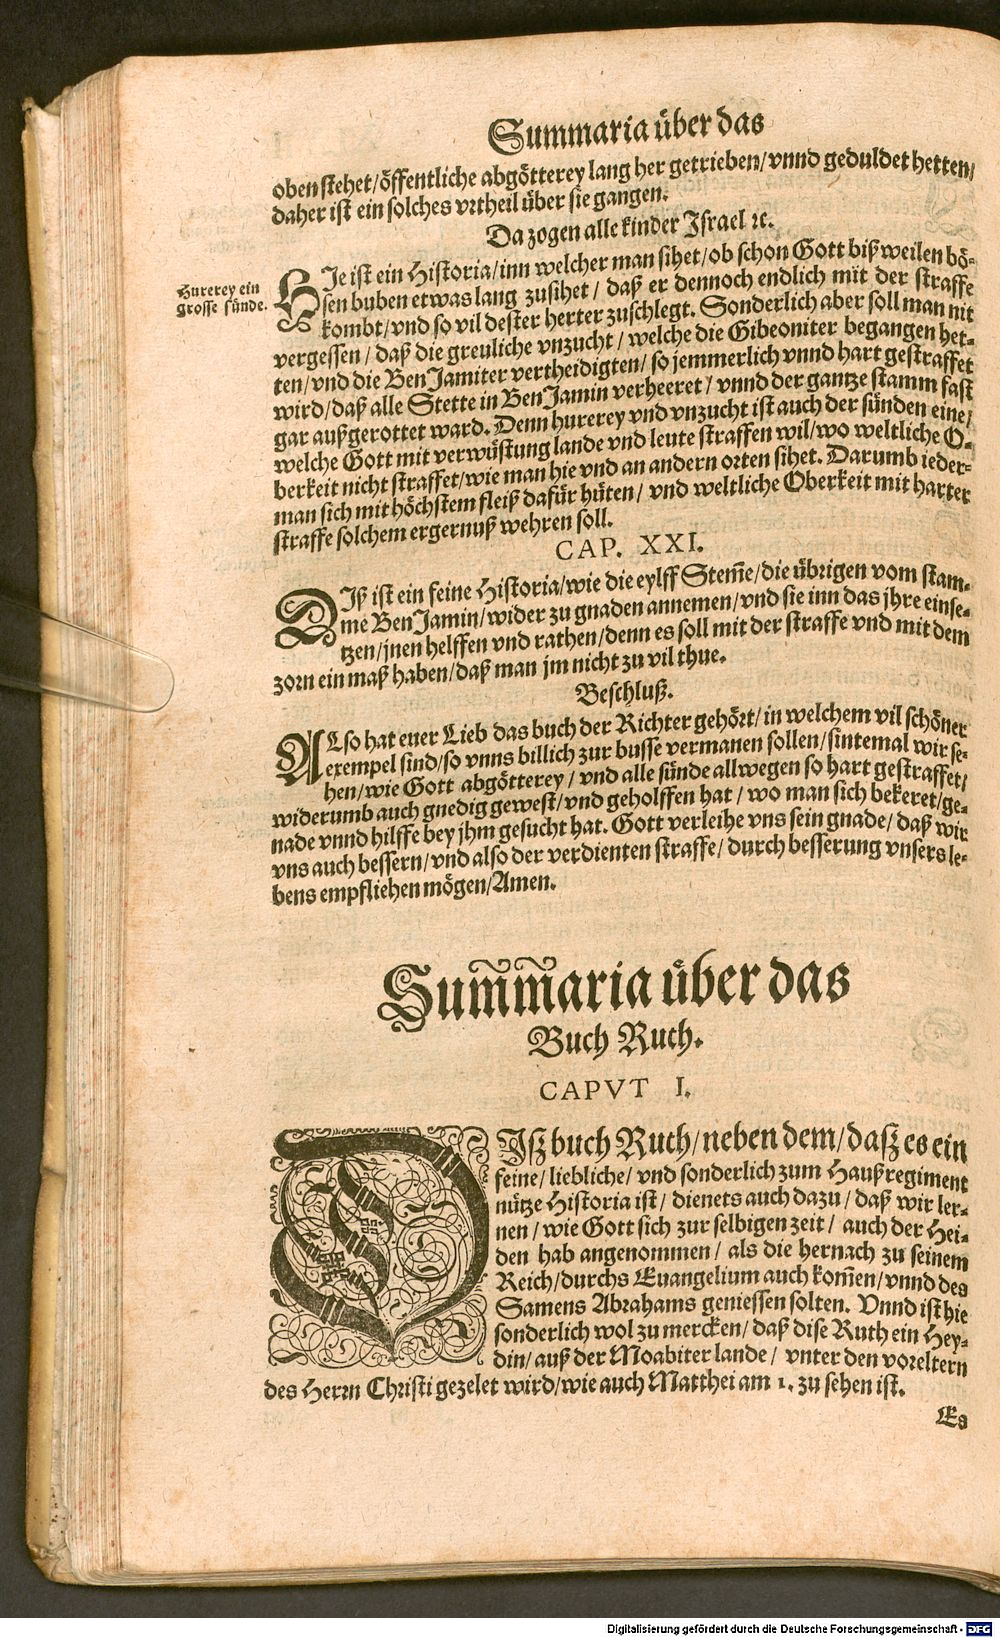 Summaria über das
oben stehet/öffentliche abgötterey lang her getrieben/vnnd geduldet hetten/
daher ist ein solches vrtheil über sie gangen.
Da zogen alle kinder Israel ꝛc.
Hurerey ein
grosse sünde.
HIe ist ein Historia/inn welcher man sihet/ob schon Gott bißweilen bö-
sen buben etwas lang zusihet/ daß er dennoch endlich mit der straffe
kombt/vnd so vil dester herter zuschlegt. Sonderlich aber soll man nit
vergessen/ daß die greuliche vnzucht/ welche die Gibeoniter begangen het-
ten/vnd die BenJamiter vertheidigten/ so jemmerlich vnnd hart gestraffet
wird/daß alle Stette in BenJamin verheeret/ vnnd der gantze stamm fast
gar außgerottet ward. Denn hurerey vnd vnzucht ist auch der sünden eine/
welche Gott mit verwüstung lande vnd leute straffen wil/wo weltliche O-
berkeit nicht straffet/wie man hie vnd an andern orten sihet. Darumb ieder-
man sich mit höchstem fleiß dafür hüten/ vnd weltliche Oberkeit mit harter
straffe solchem ergernuß wehren soll.
CAP. XXI.
DIß ist ein feine Historia/wie die eylff Stem̃e/die übrigen vom stam-
me BenJamin/wider zu gnaden annemen/vnd sie inn das jhre einse-
tzen/jnen helffen vnd rathen/denn es soll mit der straffe vnd mit dem
zorn ein maß haben/daß man jm nicht zu vil thue.
Beschluß.
ALso hat euer Lieb das buch der Richter gehört/in welchem vil schöner
exempel sind/so vnns billich zur busse vermanen sollen/sintemal wir se-
hen/wie Gott abgötterey/ vnd alle sünde allwegen so hart gestraffet/
widerumb auch gnedig gewest/vnd geholffen hat/ wo man sich bekeret/ge-
nade vnnd hilffe bey jhm gesucht hat. Gott verleihe vns sein gnade/ daß wir
vns auch bessern/vnd also der verdienten straffe/durch besserung vnsers le-
bens empfliehen mögen/Amen.
Sum̃m̃aria über das
Buch Ruth.
CAPVT I.
DIsz buch Ruth/neben dem/dasz es ein
feine/liebliche/vnd sonderlich zum Haußregiment
nütze Historia ist/ dienets auch dazu/ daß wir ler-
nen/ wie Gott sich zur selbigen zeit/ auch der Hei-
den hab angenommen/ als die hernach zu seinem
Reich/durchs Euangelium auch kom̃en/vnnd des
Samens Abrahams geniessen solten. Vnnd ist hie
sonderlich wol zu mercken/daß dise Ruth ein Hey-
din/auß der Moabiter lande/ vnter den voreltern
des Herrn Christi gezelet wird/wie auch Matthei am 1. zu sehen ist.
Es
Digitalisierung gefördert durch die Deutsche Forschungsgemeinschaft - DFG